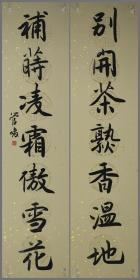 別開茶熟香温地
補蒔凌霜傲雪花